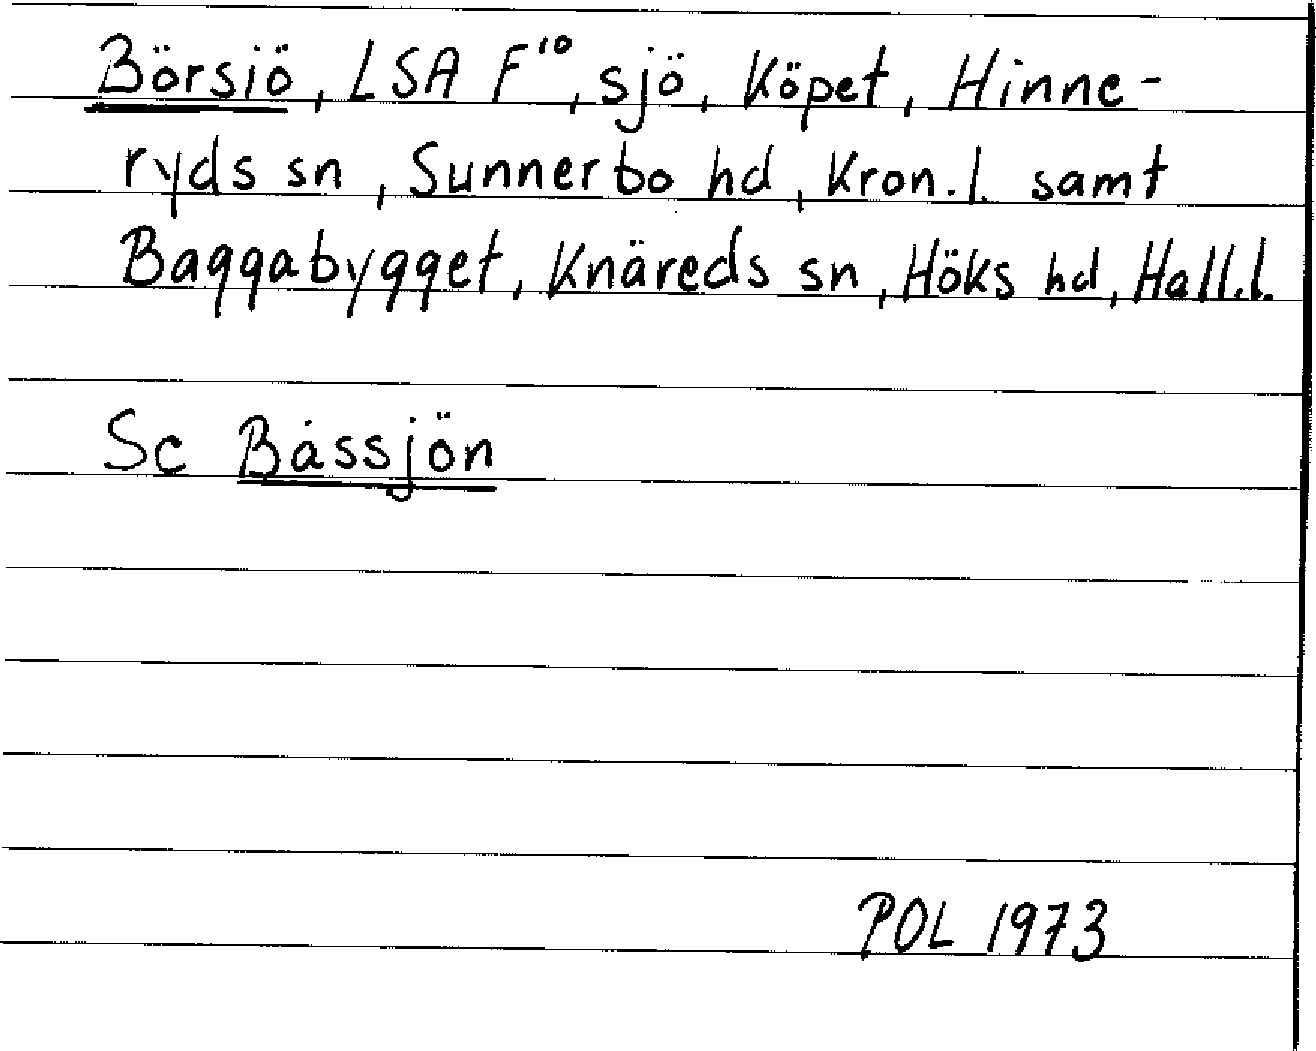 Börsiö, LSA F¹⁰, sjö, Köpet, Hinne-
ryds sn, Sunnerbo hd, Kron.l. samt
Baggabygget, Knäreds sn, Höks hd, Hall.l.
Sc Båssjön
POL 1973